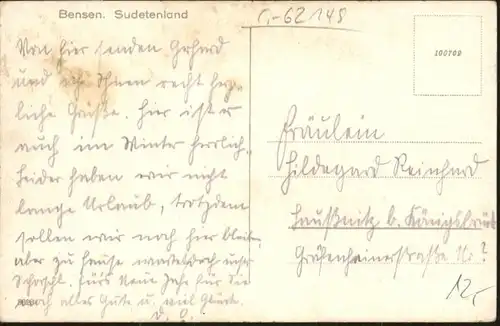 Bensen. Sudetenland
C-62148
100709
Von hier senden Gerhard
und ich Ihnen recht herz-
liche Grüße. Hier ist es
auch im Winter herrlich.
Leider haben wir nicht
lange Urlaub, trotzdem
sollen wir noch hier bleiben
aber zu Hause wartet doch unser
Schorschl. Fürs Neue Jahr für Sie
noch alles Gute u. viel Glück.
D. O.
Fräulein
Hildegard Reinhard
Laußnitz b. Königsbrück
Gräfenhainerstraße Nr. ?
12,-